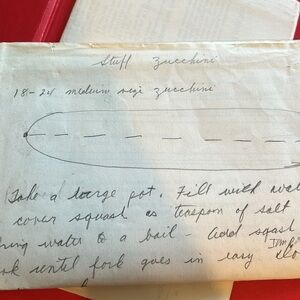 Stuff zucchini
18-24 medium size zucchini
Take a large pot. Fill with wat
cover squash as teaspon of salt
ing water to a boil - add squash
ok until fork goes in easy